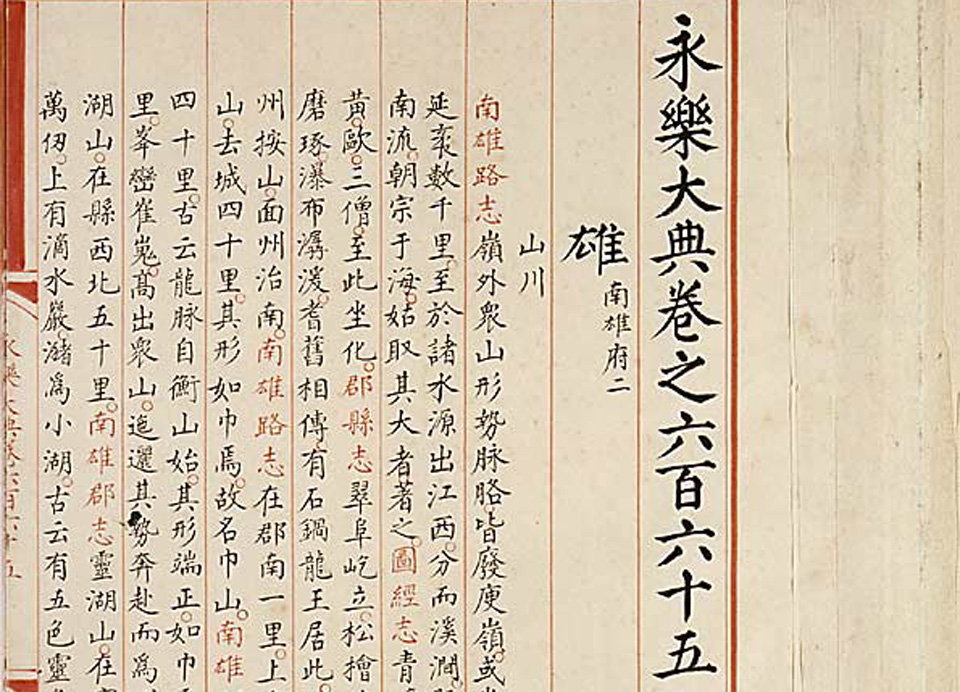 永樂大典卷之六百六十五
雄 南雄府二
山川
南雄路志嶺外衆山形勢脉胳。皆廢庾嶺。或
延袤數千里。至於諸水源出江西。分而溪澗。
南流。朝宗于海。姑取其大者著之。圖經志青
黃。歐。三僧。至此坐化。郡縣志翠阜屹立。松檜
磨琢。瀑布潺湲。耆舊相傳。有石鍋龍王居此。
州按山。面州治南。南雄路志在郡南一里。上
山。去城四十里。其形如巾焉。故名巾山。南雄
四十里。古云龍脉自衡山始。其形端正。如巾
里。峯巒崔嵬。高出衆山。迤邐其勢奔赴而爲
湖山。在縣西北五十里。南雄郡志靈湖山。在
萬仭。上有滴水巖。潴爲小湖。古云有五色靈
永樂大典卷六百六十五